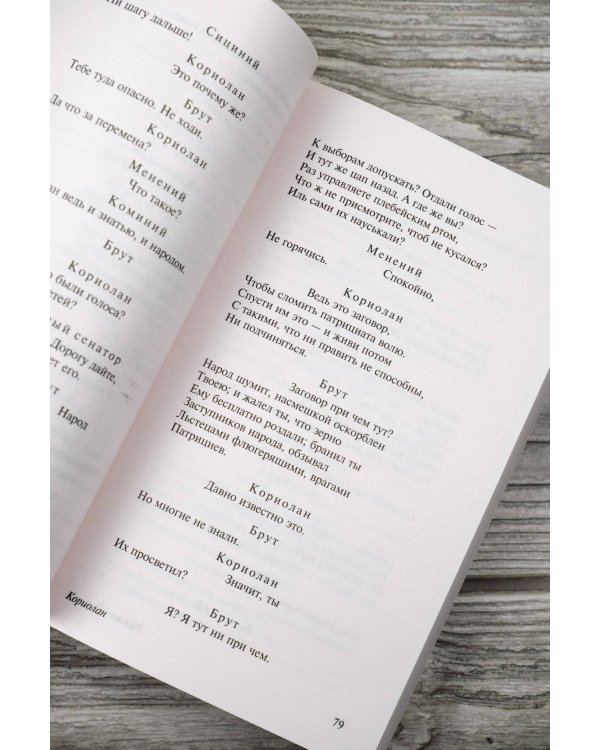 ни шагу дальше!
Сициний
Кориолан
Это почему же?
Брут
Тебе туда опасно. Не ходи.
Кориолан
Да что за перемена?
Менений
Что такое?
Коминий
ведь и знатью, и народом.
Брут
Кориолан
были голоса?
сенатор
Дорогу дайте,
его.
Народ
К выборам допускать? Отдали голос —
И тут же цап назад. А где же вы?
Раз управляете плебейским ртом,
Что ж не присмотрите, чтоб не кусался?
Иль сами их науськали?
Менений
Спокойно,
Не горячись.
Кориолан
Ведь это заговор,
Чтобы сломить патрициата волю.
Спусти им это — и живи потом
С такими, что ни править не способны,
Ни подчиняться.
Брут
Заговор при чем тут?
Народ шумит, насмешкой оскорблен
Твоею; и жалел ты, что зерно
Ему бесплатно роздали; бранил ты
Заступников народа, обзывал
Льстецами флюгерящими, врагами
Патрициев.
Кориолан
Давно известно это.
Брут
Но многие не знали.
Кориолан
Значит, ты
Их просветил?
Брут
Я? Я тут ни при чем.
Кориолан
79